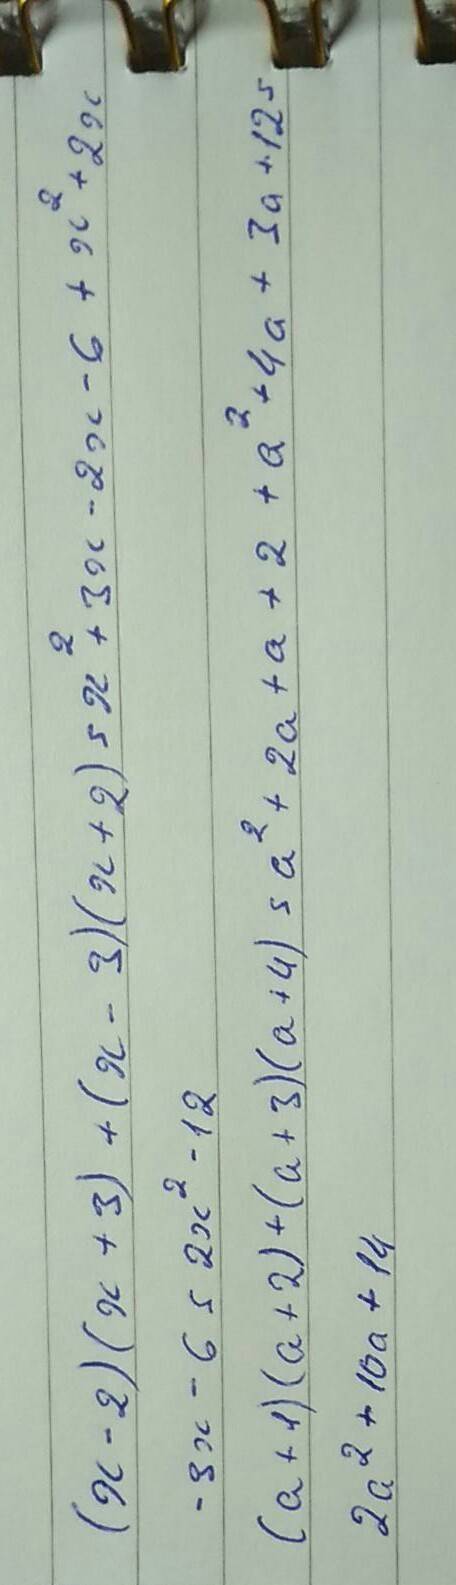 (x-2)(x+3)+(x-3)(x+2)=x²+3x-2x-6+x²+2x
-3x-6=2x²-12
(a+1)(a+2)+(a+3)(a+4)=a²+2a+a+2+a²+4a+3a+12=
2a²+10a+14